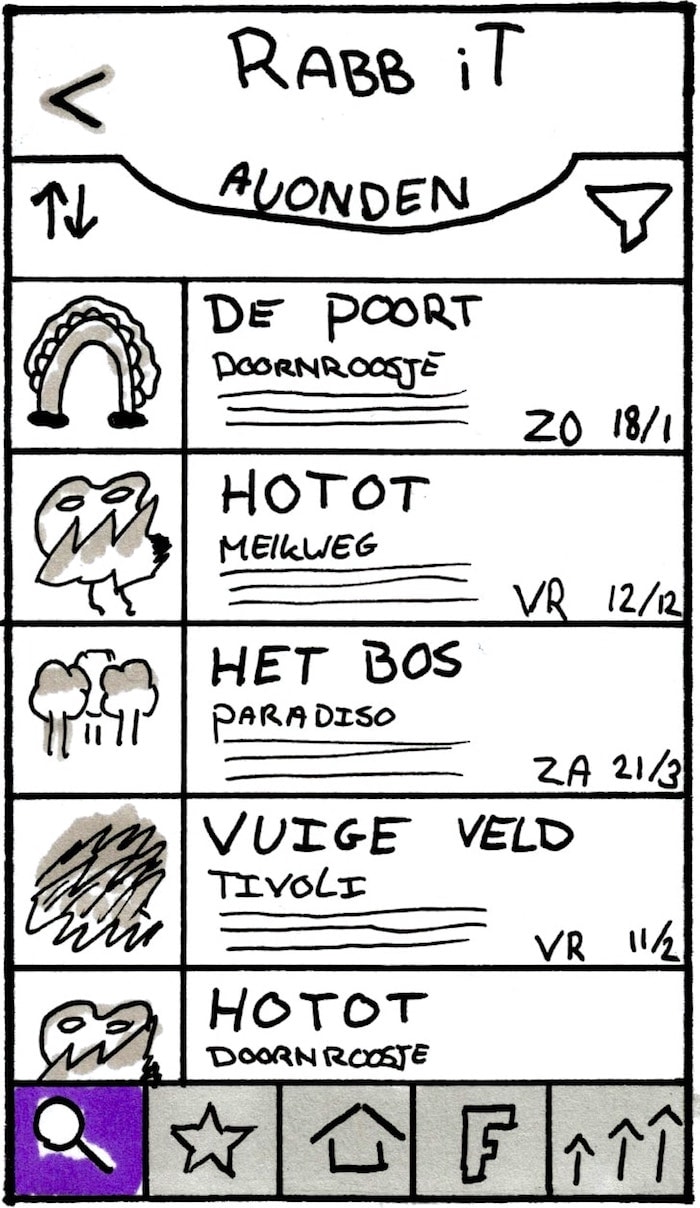 <
RABB iT
AVONDEN
DE POORT
DOORNROOSJE
ZO 18/1
HOTOT
MELKWEG
VR 12/12
HET BOS
PARADISO
ZA 21/3
VUIGE VELD
TIVOLI
VR 11/2
HOTOT
DOORNROOSJE
F